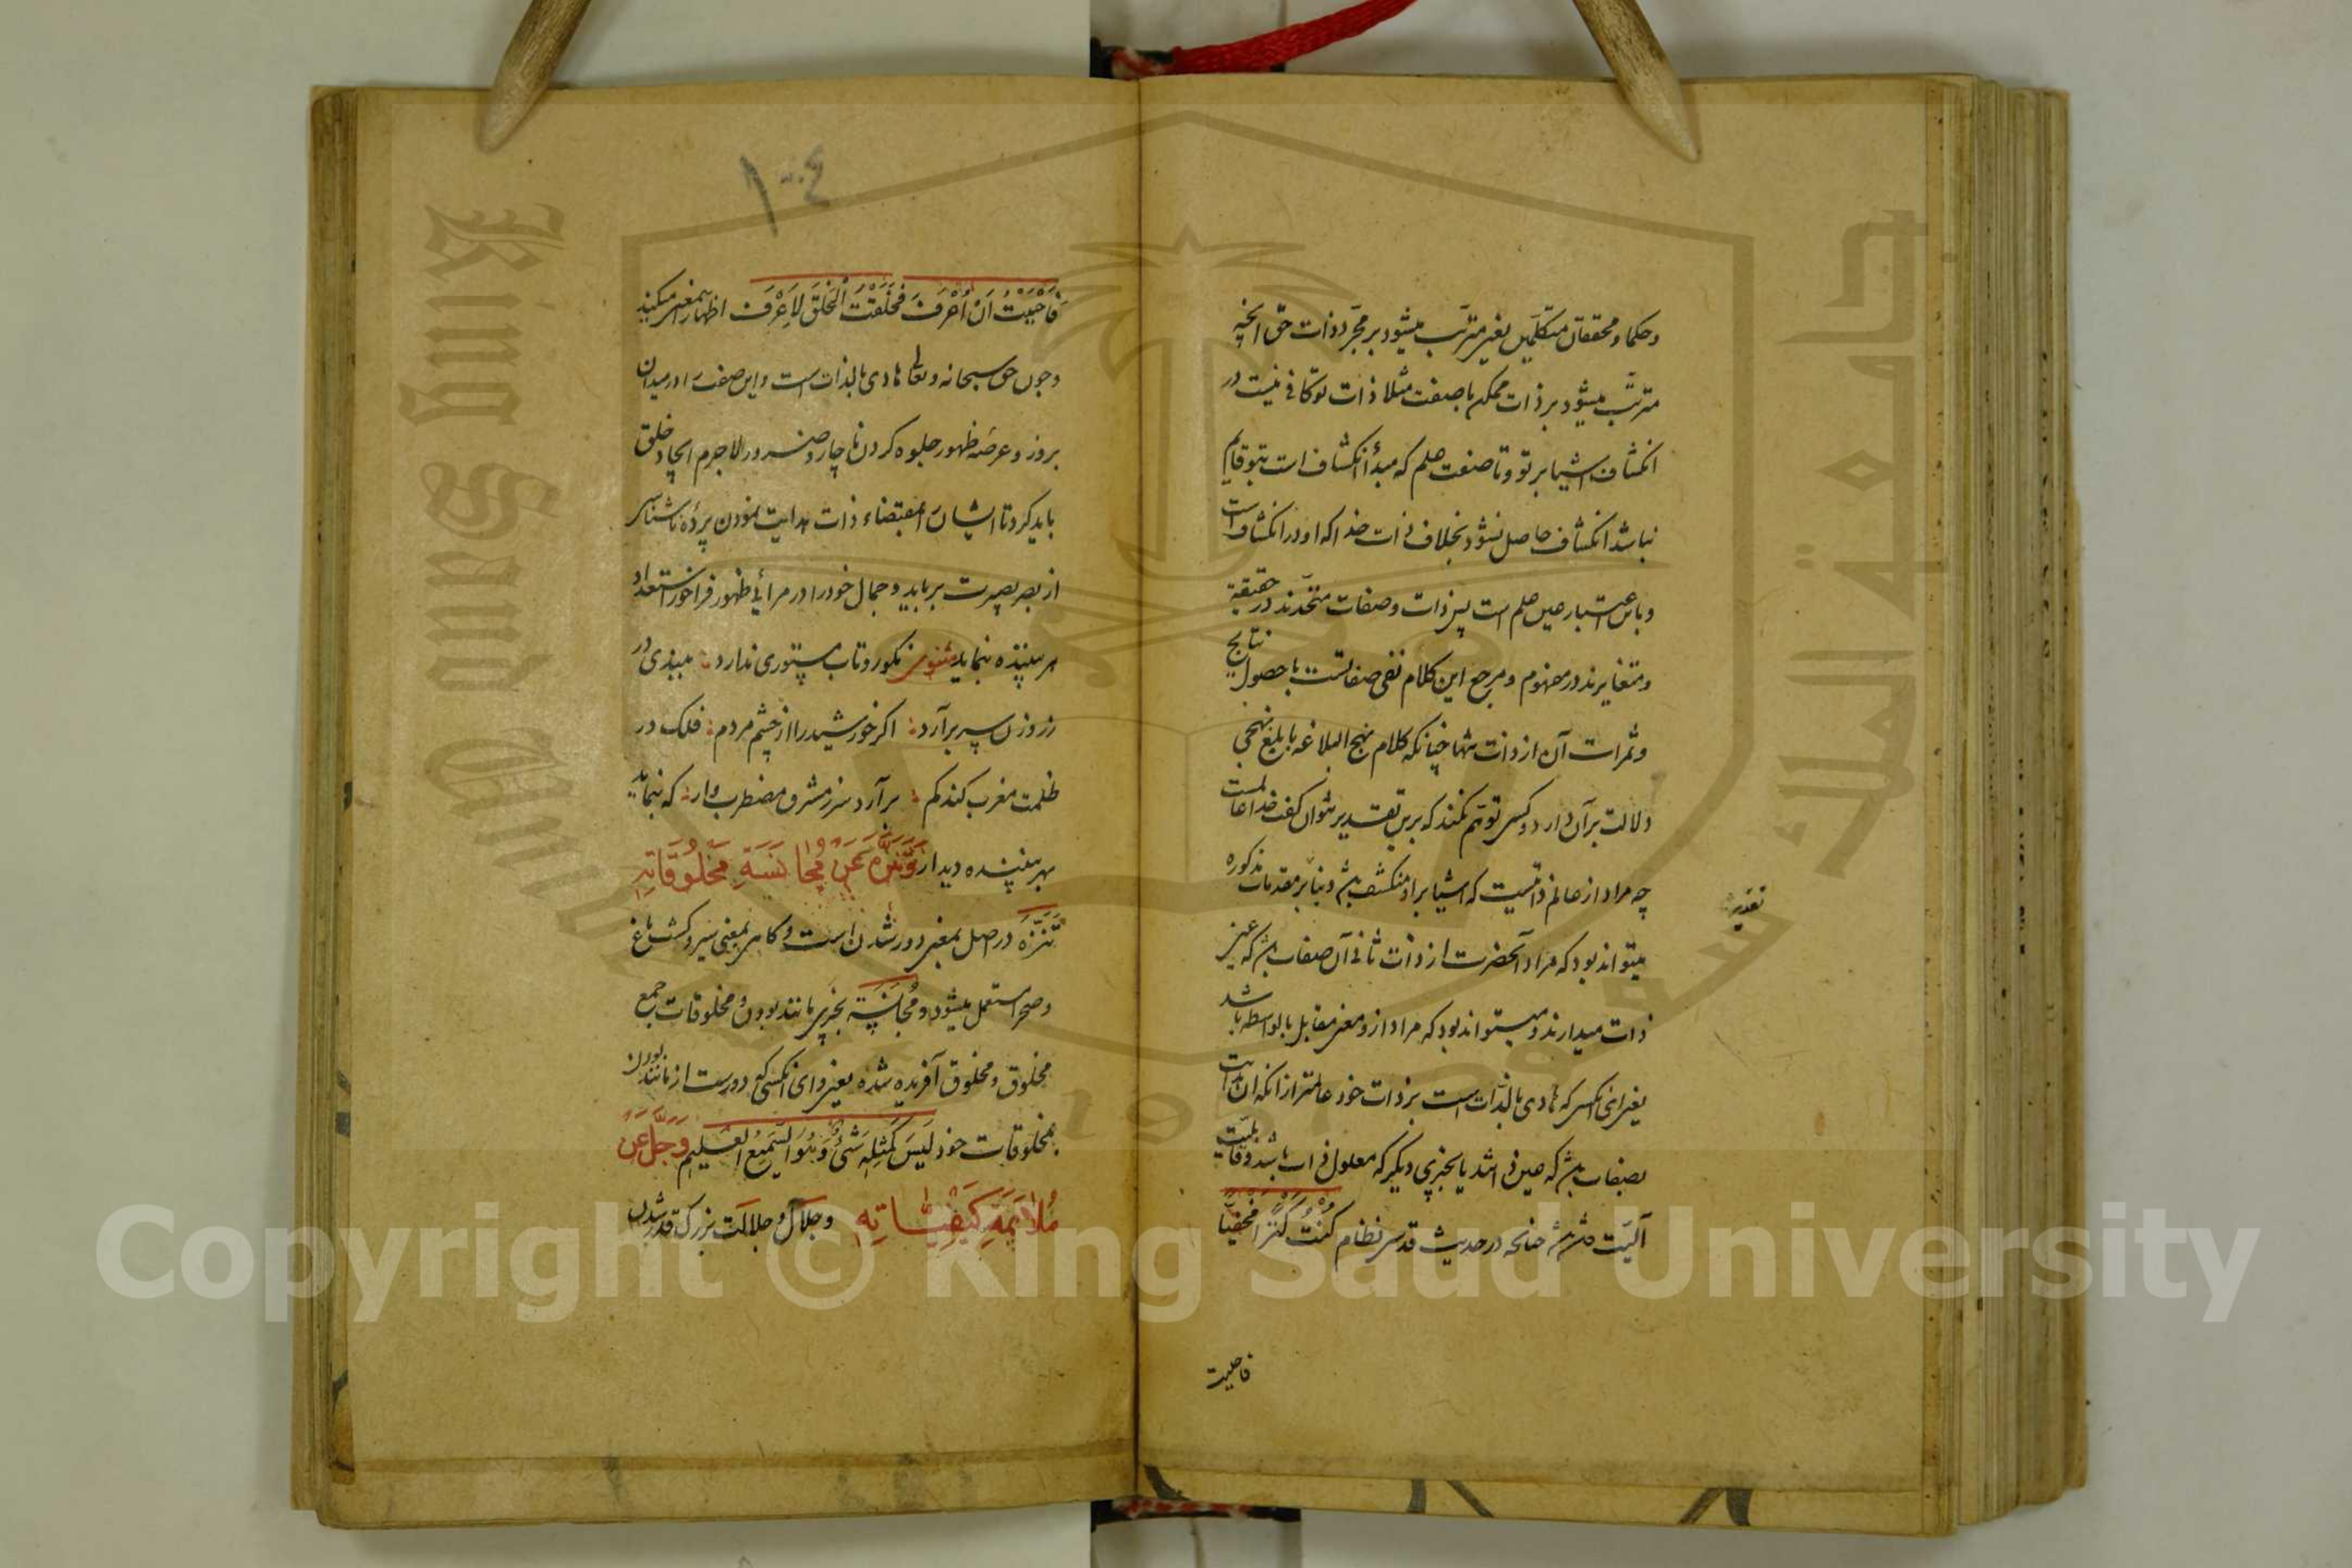 وحکما و محققان متکلمین یعنی مترتب میشود بر مجرد ذات حق آنچه
مترتب میشود بر ذات ممکن با صفت مثلا ذات تو کافی نیست در
انکشاف اشیا بر تو و تا صفت علم که مبدأ انکشاف است بتو قایم
نباشد انکشاف حاصل نشود بخلاف ذات خدا که او در انکشاف است
وباین اعتبار عین علم است پس ذات وصفات متحدند در حقیقة
ومتغایرند در مفهوم ومرجع این کلام نفی صفاتست با حصول نتایج
وثمرات آن از ذات تنها چنانکه کلام نهج البلاغه با بلغ نهجی
دلالت بر آن دارد و کسی توهم نکند که برین تقدیر نتوان گفت خدا عالمست
چه مراد از عالم ذاتیست که اشیا بر او منکشف باشد و بنا بر مقدمات مذکوره
تقدیر
میتواند بود که مراد آنحضرت از ذات ثانی آن صفات باشد که عین
ذات میدارند و میتواند بود که مراد ازو معنی مقابل بالواسطه باشد
یعنی ای آنکسی که هادی بالذات است بر ذات خود عالمتر از آنکه آن
بصفات باشد که عین ذاتند یا بچیزی دیگر که معلول ذات باشد و قابلیت
آلیت باشد چنانچه در حدیث قدسی نظام کُنْتُ کَنْزاً مَخْفِیّاً
فاحببت
١٠٤
فَاَحْبَبْتُ اَنْ اُعْرَفَ فَخَلَقْتُ الْخَلْقَ لِاُعْرَفَ اظهار این معنی میکند
وچون حق سبحانه وتعالی هادی بالذات است واین صفت را در میدان
بروز وعرصهٔ ظهور جلوه کردن ناچار وضرور لاجرم ایجاد خلق
باید کرد تا ایشان را بمقتضاء ذات هدایت نمودن پردهٔ ناشناسی
از بصر بصیرت برباید وجمال خود را در مرائی ظهور فراخور استعداد
هر بیننده بنماید مثنوی نکو رو تاب مستوری ندارد ببندی در
ز روزن سر بر آرد اگر خورشید را از چشم مردم فلک در
ظلمت مغرب کند گم بر آرد سر ز مشرق مضطرب وار که بنماید
بهر بیننده دیدار وَتَنَزَّهَ عَنْ مُجَانَسَةِ مَخْلُوقَاتِهِ
تَنَزُّه در اصل بمعنی دور شدن است و گاهی بمعنی سیر و گشت باغ
وصحرا استعمال میشود و مُجَانَسَة بچیزی مانند بودن و مخلوقات جمع
مخلوق ومخلوق آفریده شده یعنی وای آنکسی که دورست از مانند بودن
بمخلوقات خود لَیْسَ کَمِثْلِهِ شَیْءٌ وَهُوَ السَّمِیعُ الْعَلِیم وَجَلَّ عَنْ
مُلَایَمَةِ کَیْفِیَّاتِهِ وجلال و جلالت بزرگ قدر شدن
Copyright © King Saud University
King Saud University
جامعة الملك سعود
1957